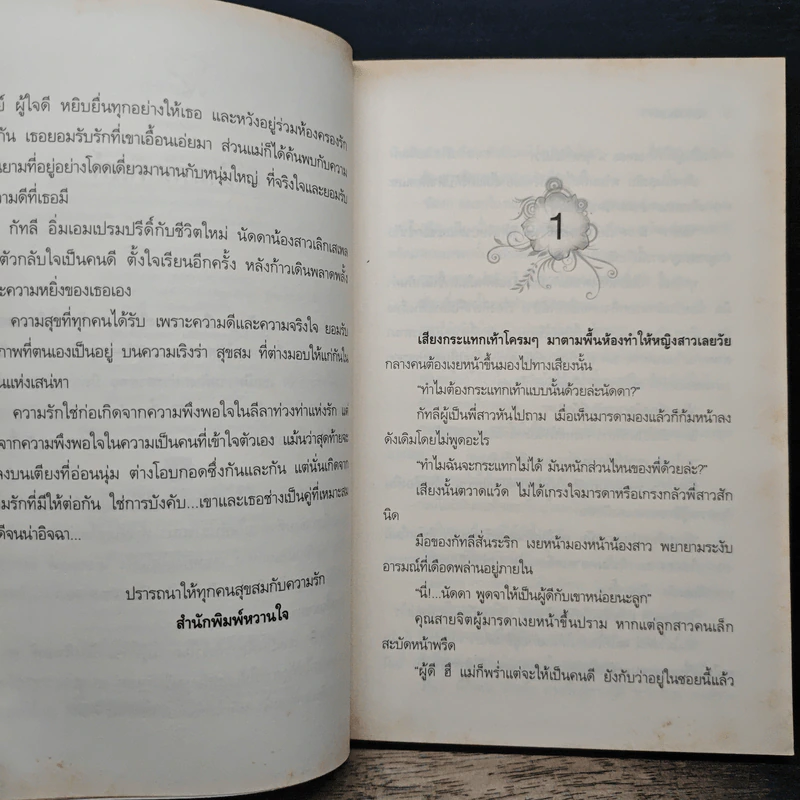 ผู้ใจดี หยิบยื่นทุกอย่างให้เธอ และหวังอยู่ร่วมห้องครองรัก
กัน เธอยอมรับรักที่เขาเอื้อนเอ่ยมา ส่วนแม่ก็ได้ค้นพบกับความ
ที่อยู่อย่างโดดเดี่ยวมานานกับหนุ่มใหญ่ ที่จริงใจและยอมรับ
ที่เธอมี
กัทลี อิ่มเอมเปรมปรีดิ์กับชีวิตใหม่ นัดดาน้องสาวเลิกเสเพล
ตัวกลับใจเป็นคนดี ตั้งใจเรียนอีกครั้ง หลังก้าวเดินพลาดพลั้ง
ความหยิ่งของเธอเอง
ความสุขที่ทุกคนได้รับ เพราะความดีและความจริงใจ ยอมรับ
ที่ตนเองเป็นอยู่ บนความเริงร่า สุขสม ที่ต่างมอบให้แก่กันใน
แห่งเสน่หา
ความรักใช่ก่อเกิดจากความพึงพอใจในลีลาท่วงท่าแห่งรัก แต่
จากความพึงพอใจในความเป็นคนที่เข้าใจตัวเอง แม้นว่าสุดท้ายจะ
ลงบนเตียงที่อ่อนนุ่ม ต่างโอบกอดซึ่งกันและกัน แต่นั่นเกิดจาก
ที่มีให้ต่อกัน ใช่การบังคับ...เขาและเธอช่างเป็นคู่ที่เหมาะสม
ดีจนน่าอิจฉา...
ปรารถนาให้ทุกคนสุขสมกับความรัก
สำนักพิมพ์หวานใจ
1
เสียงกระแทกเท้าโครมๆ มาตามพื้นห้องทำให้หญิงสาวเลยวัย
กลางคนต้องเงยหน้าขึ้นมองไปทางเสียงนั้น
“ทำไมต้องกระแทกเท้าแบบนั้นด้วยล่ะนัดดา?”
กัทลีผู้เป็นพี่สาวหันไปถาม เมื่อเห็นมารดามองแล้วก็ก้มหน้าลง
ดังเดิมโดยไม่พูดอะไร
“ทำไมฉันจะกระแทกไม่ได้ มันหนักส่วนไหนของพี่ด้วยล่ะ?”
เสียงนั้นตวาดแว้ด ไม่ได้เกรงใจมารดาหรือเกรงกลัวพี่สาวสัก
นิด
มือของกัทลีสั่นระริก เงยหน้ามองหน้าน้องสาว พยายามระงับ
อารมณ์ที่เดือดพล่านอยู่ภายใน
“นี่!...นัดดา พูดจาให้เป็นผู้ดีกับเขาหน่อยนะลูก”
คุณสายจิตผู้มารดาเงยหน้าขึ้นปราม หากแต่ลูกสาวคนเล็ก
สะบัดหน้าพรืด
“ผู้ดี ฮึ แม่ก็พร่ำแต่จะให้เป็นคนดี ยังกับว่าอยู่ในซอยนี้แล้ว